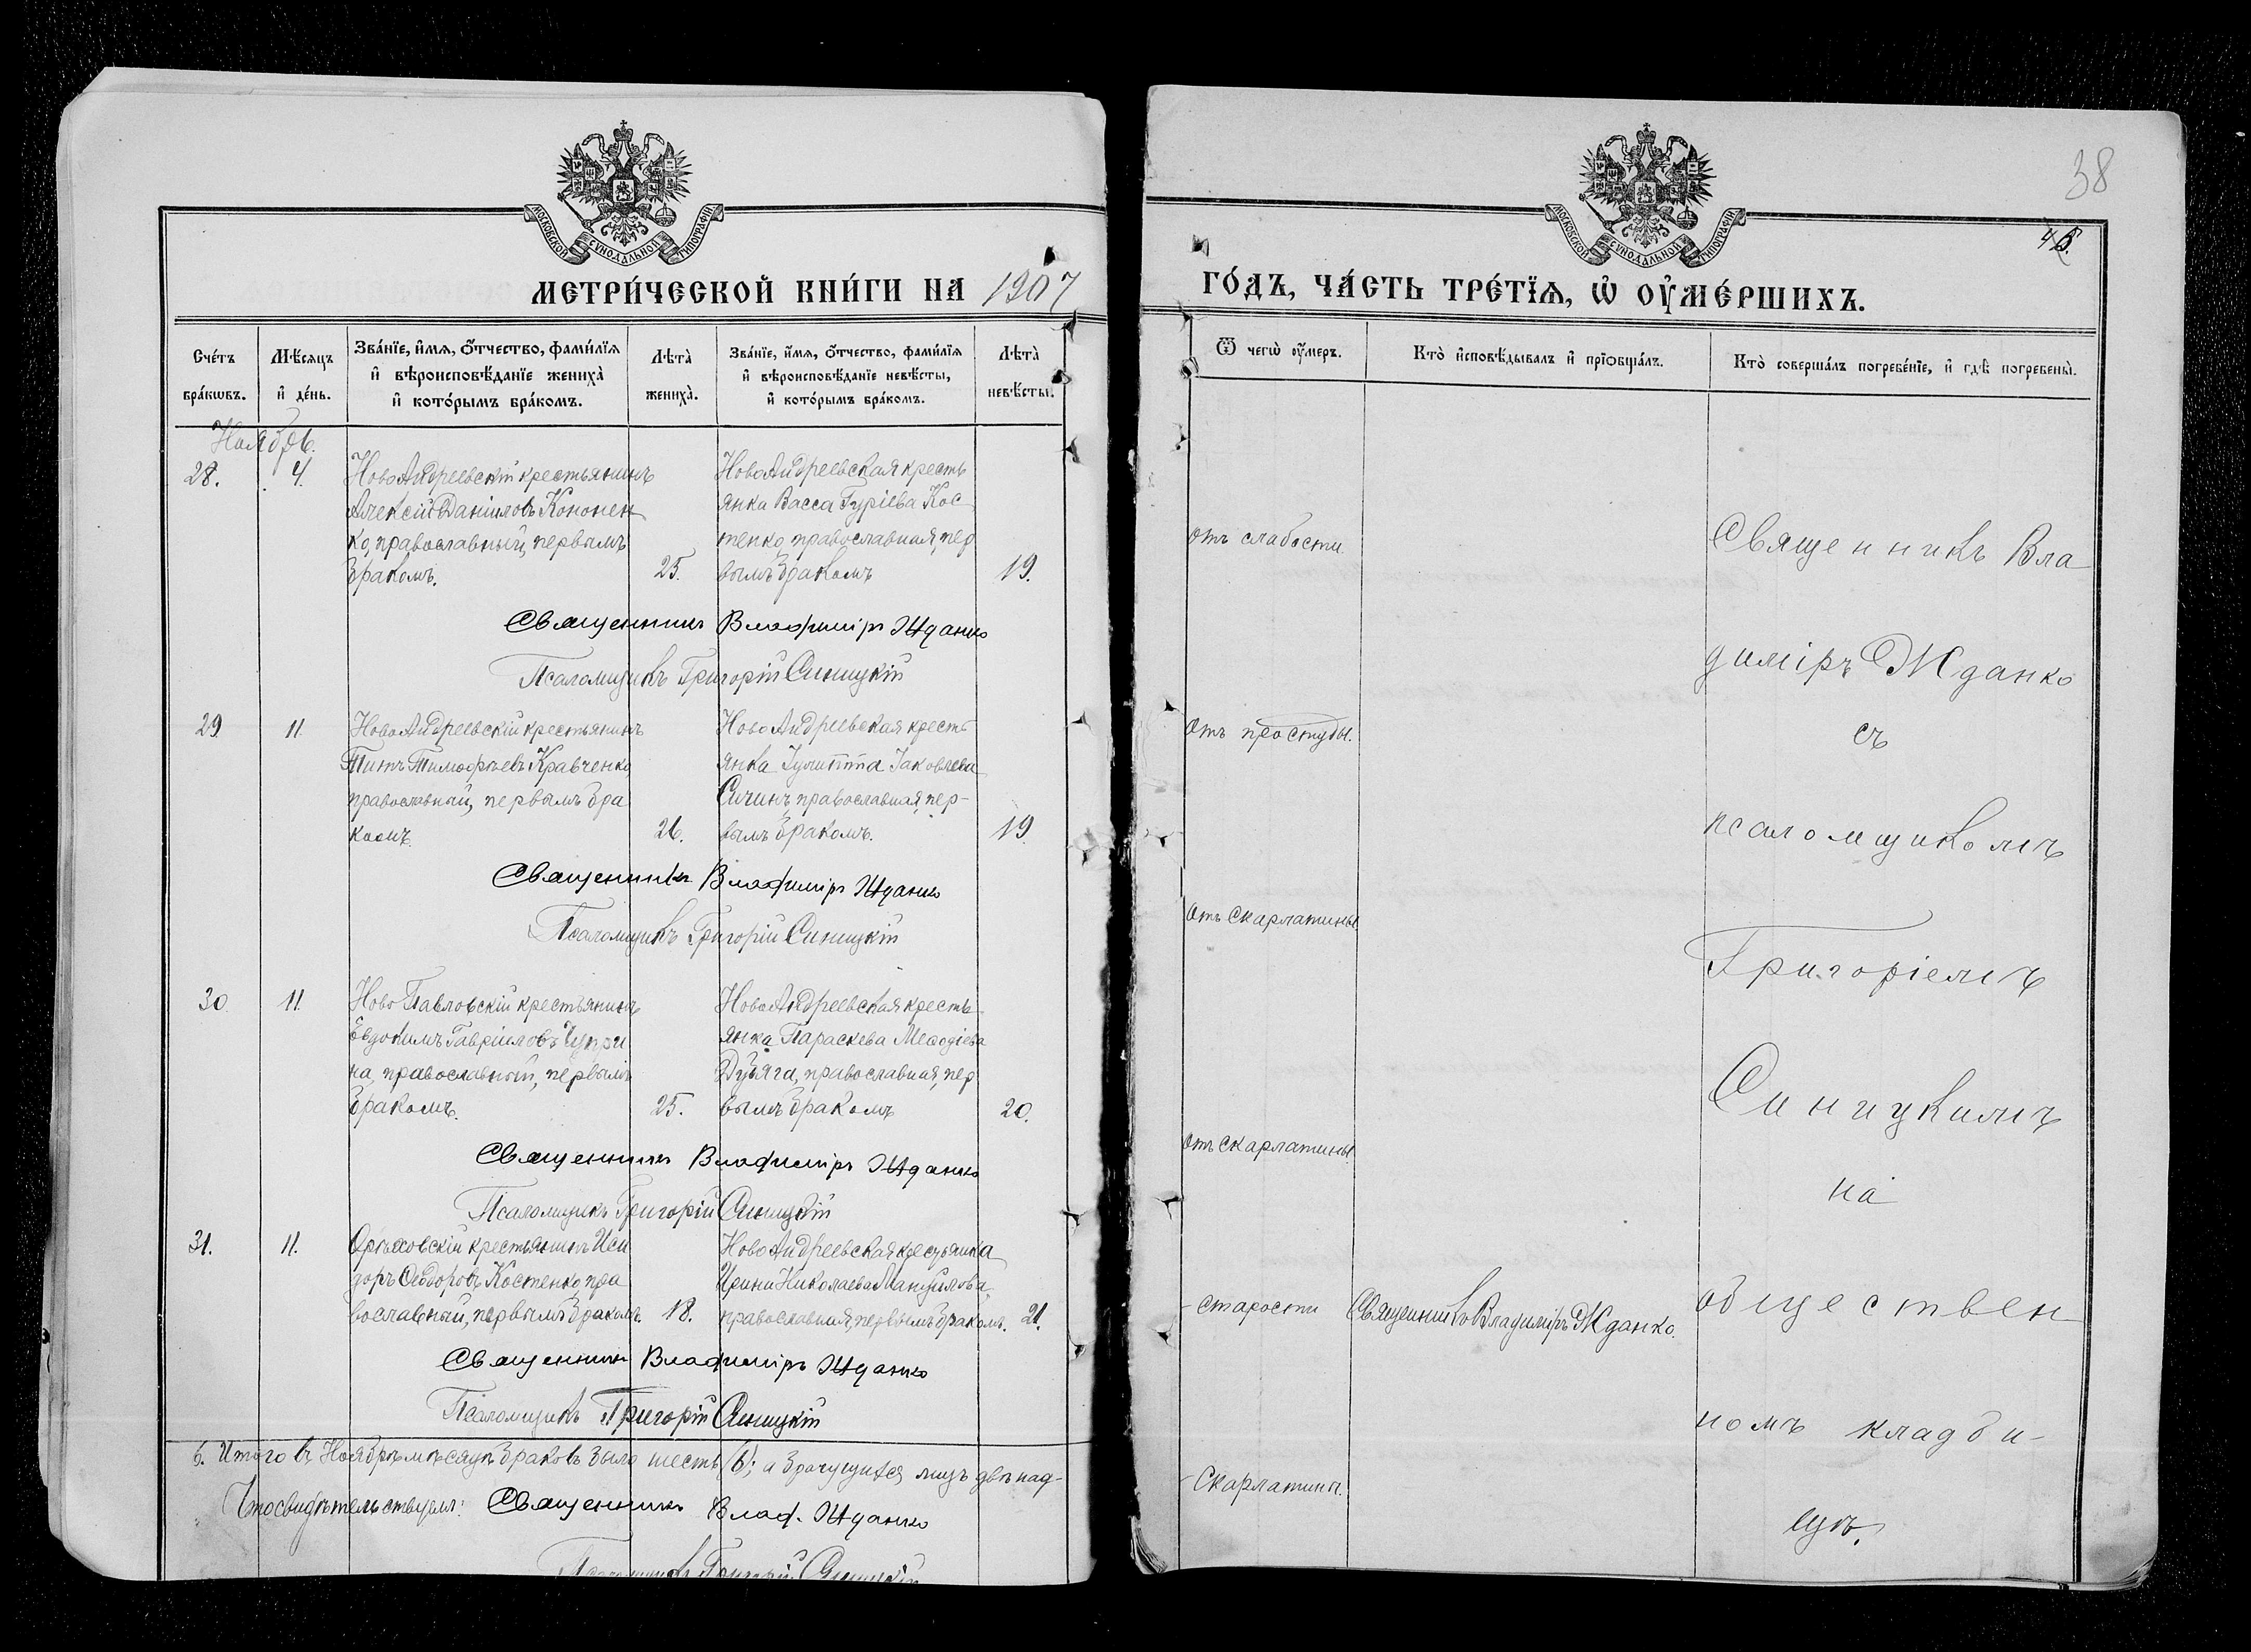 МОСКОВСКОЙ СѴНОДАЛЬНОЙ ТИПОГРАФІИ
МЕТРИ́ЧЕСКОЙ КНИ́ГИ НА 1907
Сче́тъ бра́кωвъ.
Мѣ́сяцъ и҆ де́нь.
Зва́нїе, и҆́мѧ, ѻ҆́тчество, фами́лїѧ
и҆ вѣроисповѣ́данїе жениха̀
и҆ кото́рымъ бра́комъ.
Лѣта̀ жениха̀.
Зва́нїе, и҆́мѧ, ѻ҆́тчество, фами́лїѧ
и҆ вѣроисповѣ́данїе невѣ́сты,
и҆ кото́рымъ бра́комъ.
Лѣта̀ невѣ́сты.
Ноябрь.
28. 4. НовоАндреевскій крестьянинъ
Алексій Даніиловъ Кононен
ко, православный, первымъ
бракомъ. 25.
НовоАндреевская кресть
янка Васса Гуріева Кос
тенко, православная, пер
вымъ бракомъ 19.
Священникъ Владиміръ Жданко
Псаломщикъ Григорій Синицкій
29. 11. НовоАндреевскій крестьянинъ
Титъ Тимофѣевъ Кравченко
православный, первымъ бра
комъ. 26.
НовоАндреевская кресть
янка Іулитта Іаковлева
Сичинъ, православная, пер-
вымъ бракомъ. 19.
Священникъ Владиміръ Жданко
Псаломщикъ Григорій Синицкій
30. 11. НовоПавловскій крестьянинъ
Евдокимъ Гавріиловъ Чупри
на, православный, первымъ
бракомъ. 25.
НовоАндреевская кресть
янка Параскева Меѳодіева
Дубяга, православная, пер
вымъ бракомъ 20.
Священникъ Владиміръ Жданко
Псаломщикъ Григорій Синицкій
31. 11. Орѣховскій крестьянинъ Иси
доръ Ѳеодоровъ Костенко, пра
вославный, первымъ бракомъ. 18.
НовоАндреевская крестьянка
Ирина Николаева Мануйлова,
православная, первымъ бракомъ. 21.
Священникъ Владиміръ Жданко
Псаломщикъ Григорій Синицкій
6. Итого въ Ноябрѣ мѣсяцѣ браковъ было шесть (6); а брачущихся лицъ двѣнад-
Что свидѣтельствуемъ: Священникъ Влад. Жданко
Псаломщикъ Григорій Синицкій
38
МОСКОВСКОЙ СѴНОДАЛЬНОЙ ТИПОГРАФІИ
ГО́ДЪ, ЧА́СТЬ ТРЕ́ТЇѦ, Ѡ҆ ОУ҆МЕ́РШИХЪ.
Ѿ чегѡ̀ оу҆́меръ.
Кто̀ и҆сповѣ́дывалъ и҆ прїѡбща́лъ.
Кто̀ соверша́лъ погребе́нїе, и҆ гдѣ̀ погребены̀.
отъ слабости.
отъ простуды.
отъ скарлатины
отъ скарлатины.
-старости
-скарлатины.
Священникъ Владиміръ Жданко.
Священникъ Вла
диміръ Жданко
съ
псаломщикомъ
Григоріемъ
Синицкимъ
на
обществен
номъ кладби-
щѣ.